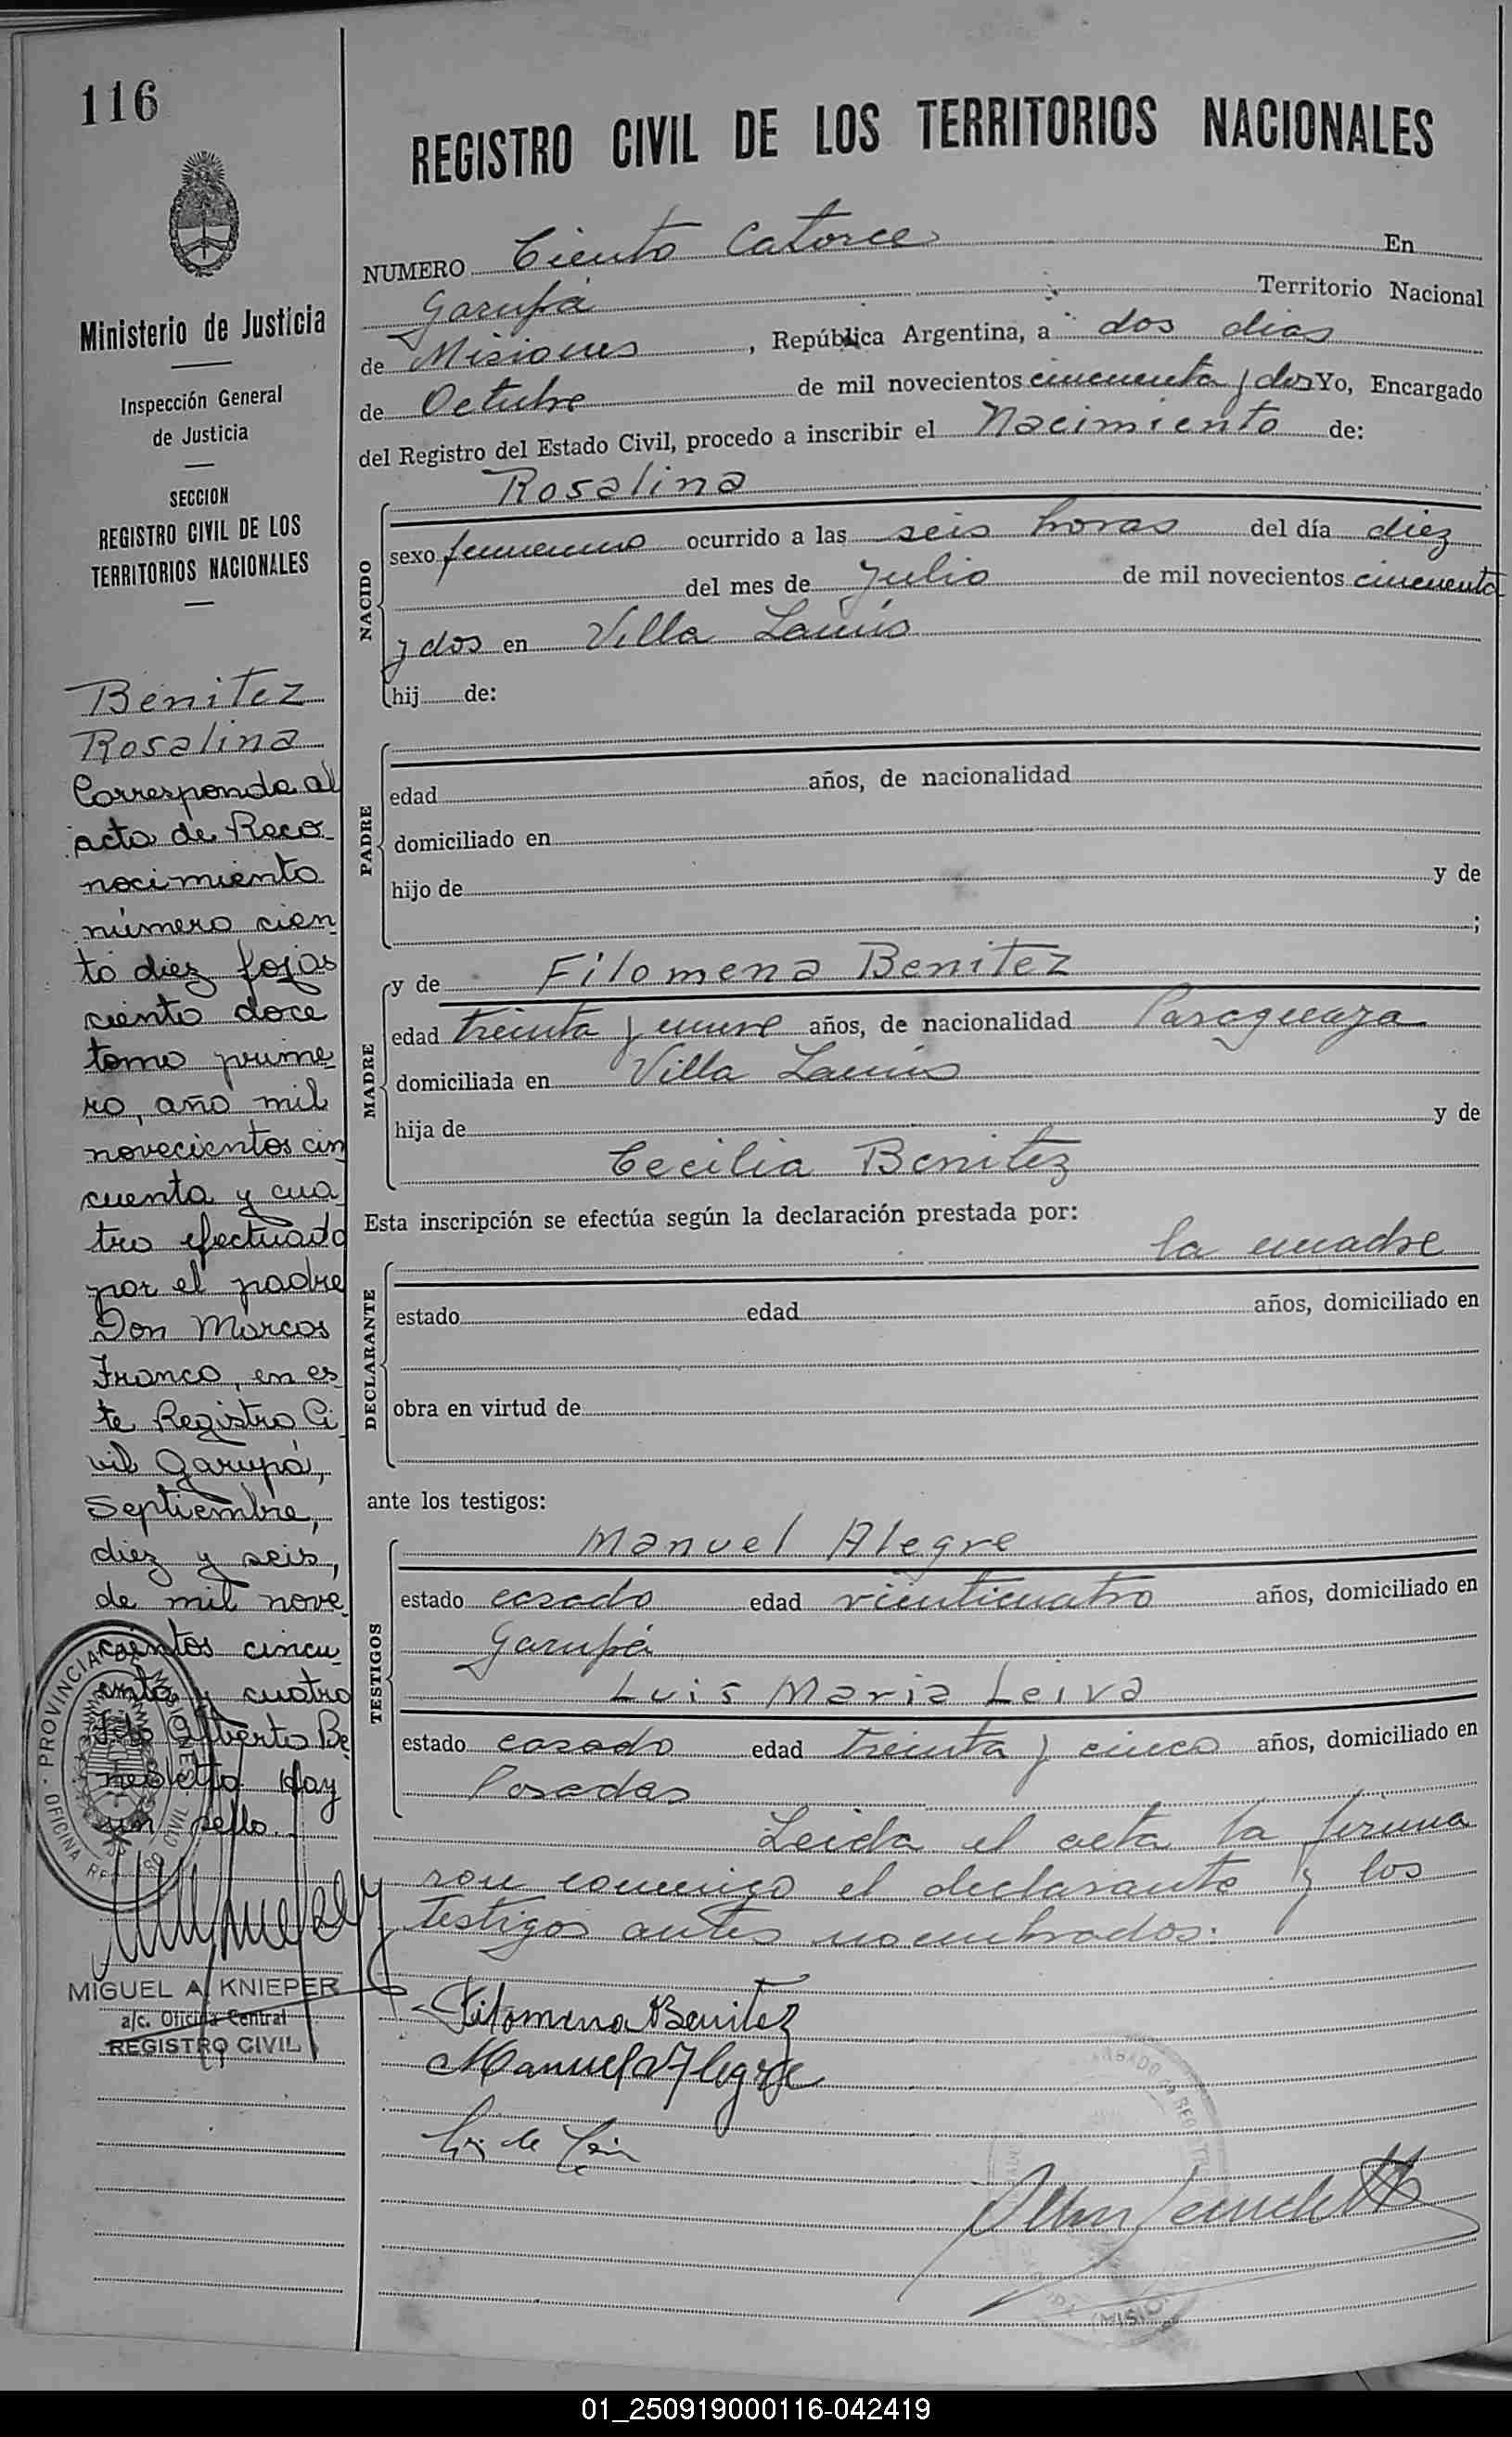 116
Ministerio de Justicia
Inspección General
de Justicia
SECCION
REGISTRO CIVIL DE LOS
TERRITORIOS NACIONALES
Benitez
Rosalina
Corresponde al
acta de Reco
nocimiento
número cien
to diez fojas
ciento doce
tomo prime
ro, año mil
novecientos cin
cuenta y cua
tro efectuado
por el padre
Don Marcos
Franco, en es
te Registro Ci
vil Garupá,
Septiembre,
diez y seis,
de mil nove
cientos cincu
enta y cuatro
Fdo Alberto Be
Hay
un sello.
PROVINCIA DE MISIONES
OFICINA CIVIL
MIGUEL A. KNIEPER
a/c. Oficina Central
REGISTRO CIVIL
REGISTRO CIVIL DE LOS TERRITORIOS NACIONALES
NUMERO Ciento Catorce En
Garupá Territorio Nacional
de Misiones, República Argentina, a dos dias
de Octubre de mil novecientos cincuenta y dos Yo, Encargado
del Registro del Estado Civil, procedo a inscribir el Nacimiento de:
NACIDO
Rosalina
sexo femenino ocurrido a las seis horas del día diez
del mes de Julio de mil novecientos cincuenta
y dos en Villa Lanús
hij de:
PADRE
edad años, de nacionalidad
domiciliado en
hijo de y de
;
MADRE
y de Filomena Benitez
edad treinta y nueve años, de nacionalidad Paraguaya
domiciliada en Villa Lanús
hija de y de
Cecilia Benitez
Esta inscripción se efectúa según la declaración prestada por:
DECLARANTE
la madre
estado edad años, domiciliado en
obra en virtud de
ante los testigos:
TESTIGOS
Manuel Alegre
estado casado edad vienticuatro años, domiciliado en
Garupá
Luis Maria Leiva
estado casado edad treinta y cinco años, domiciliado en
Posadas
Leida el acta la firma
ron conmigo el declarante y los
testigos antes nombrados.
Filomena Benitez
Manuel Alegre
01_250919000116-042419